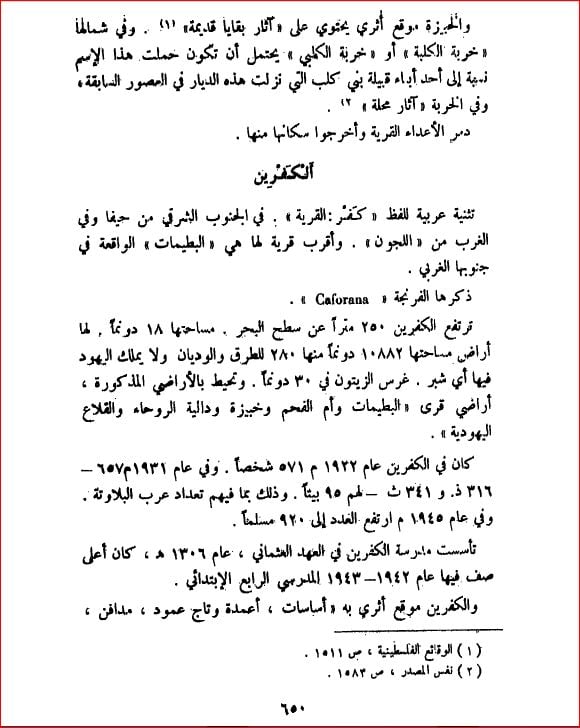 والخبيزة موقع أثري يحتوي على «آثار بقايا قديمة» (١) . وفي شمالها
«خربة الكلبة» أو «خربة الكلبي» يحتمل أن تكون حملت هذا الإسم
نسبة إلى أحد أبناء قبيلة بني كلب التي نزلت هذه الديار في العصور السابقة،
وفي الخربة «آثار محلة» ٢) .
دمر الأعداء القرية وأخرجوا سكانها منها .
ألْكَفْرين
تثنية عربية للفظ «كَفْر : القرية» . في الجنوب الشرقي من حيفا وفي
الغرب من «اللجون» . وأقرب قرية لها هي «البطيمات» الواقعة في
جنوبها الغربي .
ذكرها الفرنجة « Caforana » .
ترتفع الكفرين ٢٥٠ متراً عن سطح البحر . مساحتها ١٨ دونماً . لها
أراض مساحتها ١٠٨٨٢ دونماً منها ٢٨٠ للطرق والوديان ولا يملك اليهود
فيها أي شبر . غرس الزيتون في ٣٠ دونماً . وتحيط بالأراضي المذكورة ،
أراضي قرى «البطيمات وأم الفحم وخبيزة ودالية الروحاء والقلاع
اليهودية » .
كان في الكفرين عام ١٩٢٢ م ٥٧١ شخصاً . وفي عام ١٩٣١م ٦٥٧ –
٣١٦ ذ. و ٣٤١ ث – لهم ٩٥ بيتاً . وذلك بما فيهم تعداد عرب البلاوتة .
وفي عام ١٩٤٥ م ارتفع العدد إلى ٩٢٠ مسلماً .
تأسست مدرسة الكفرين في العهد العثماني ، عام ١٣٠٦ هـ ، كان أعلى
صف فيها عام ١٩٤٢– ١٩٤٣ المدرسي الرابع الإبتدائي .
والكفرين موقع أثري به «أساسات ، أعمدة وتاج عمود ، مدافن ،
(١) الوقائع الفلسطينية ، ص ١٥١١ .
(٢) نفس المصدر ، ص ١٥٨٣ .
٦٥٠